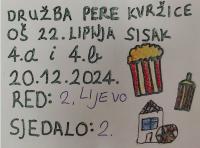 DRUŽBA PERE KVRŽICE
OŠ 22. LIPNJA SISAK
4.a i 4.b
20.12.2024.
RED: 2, LIJEVO
SJEDALO: 2.